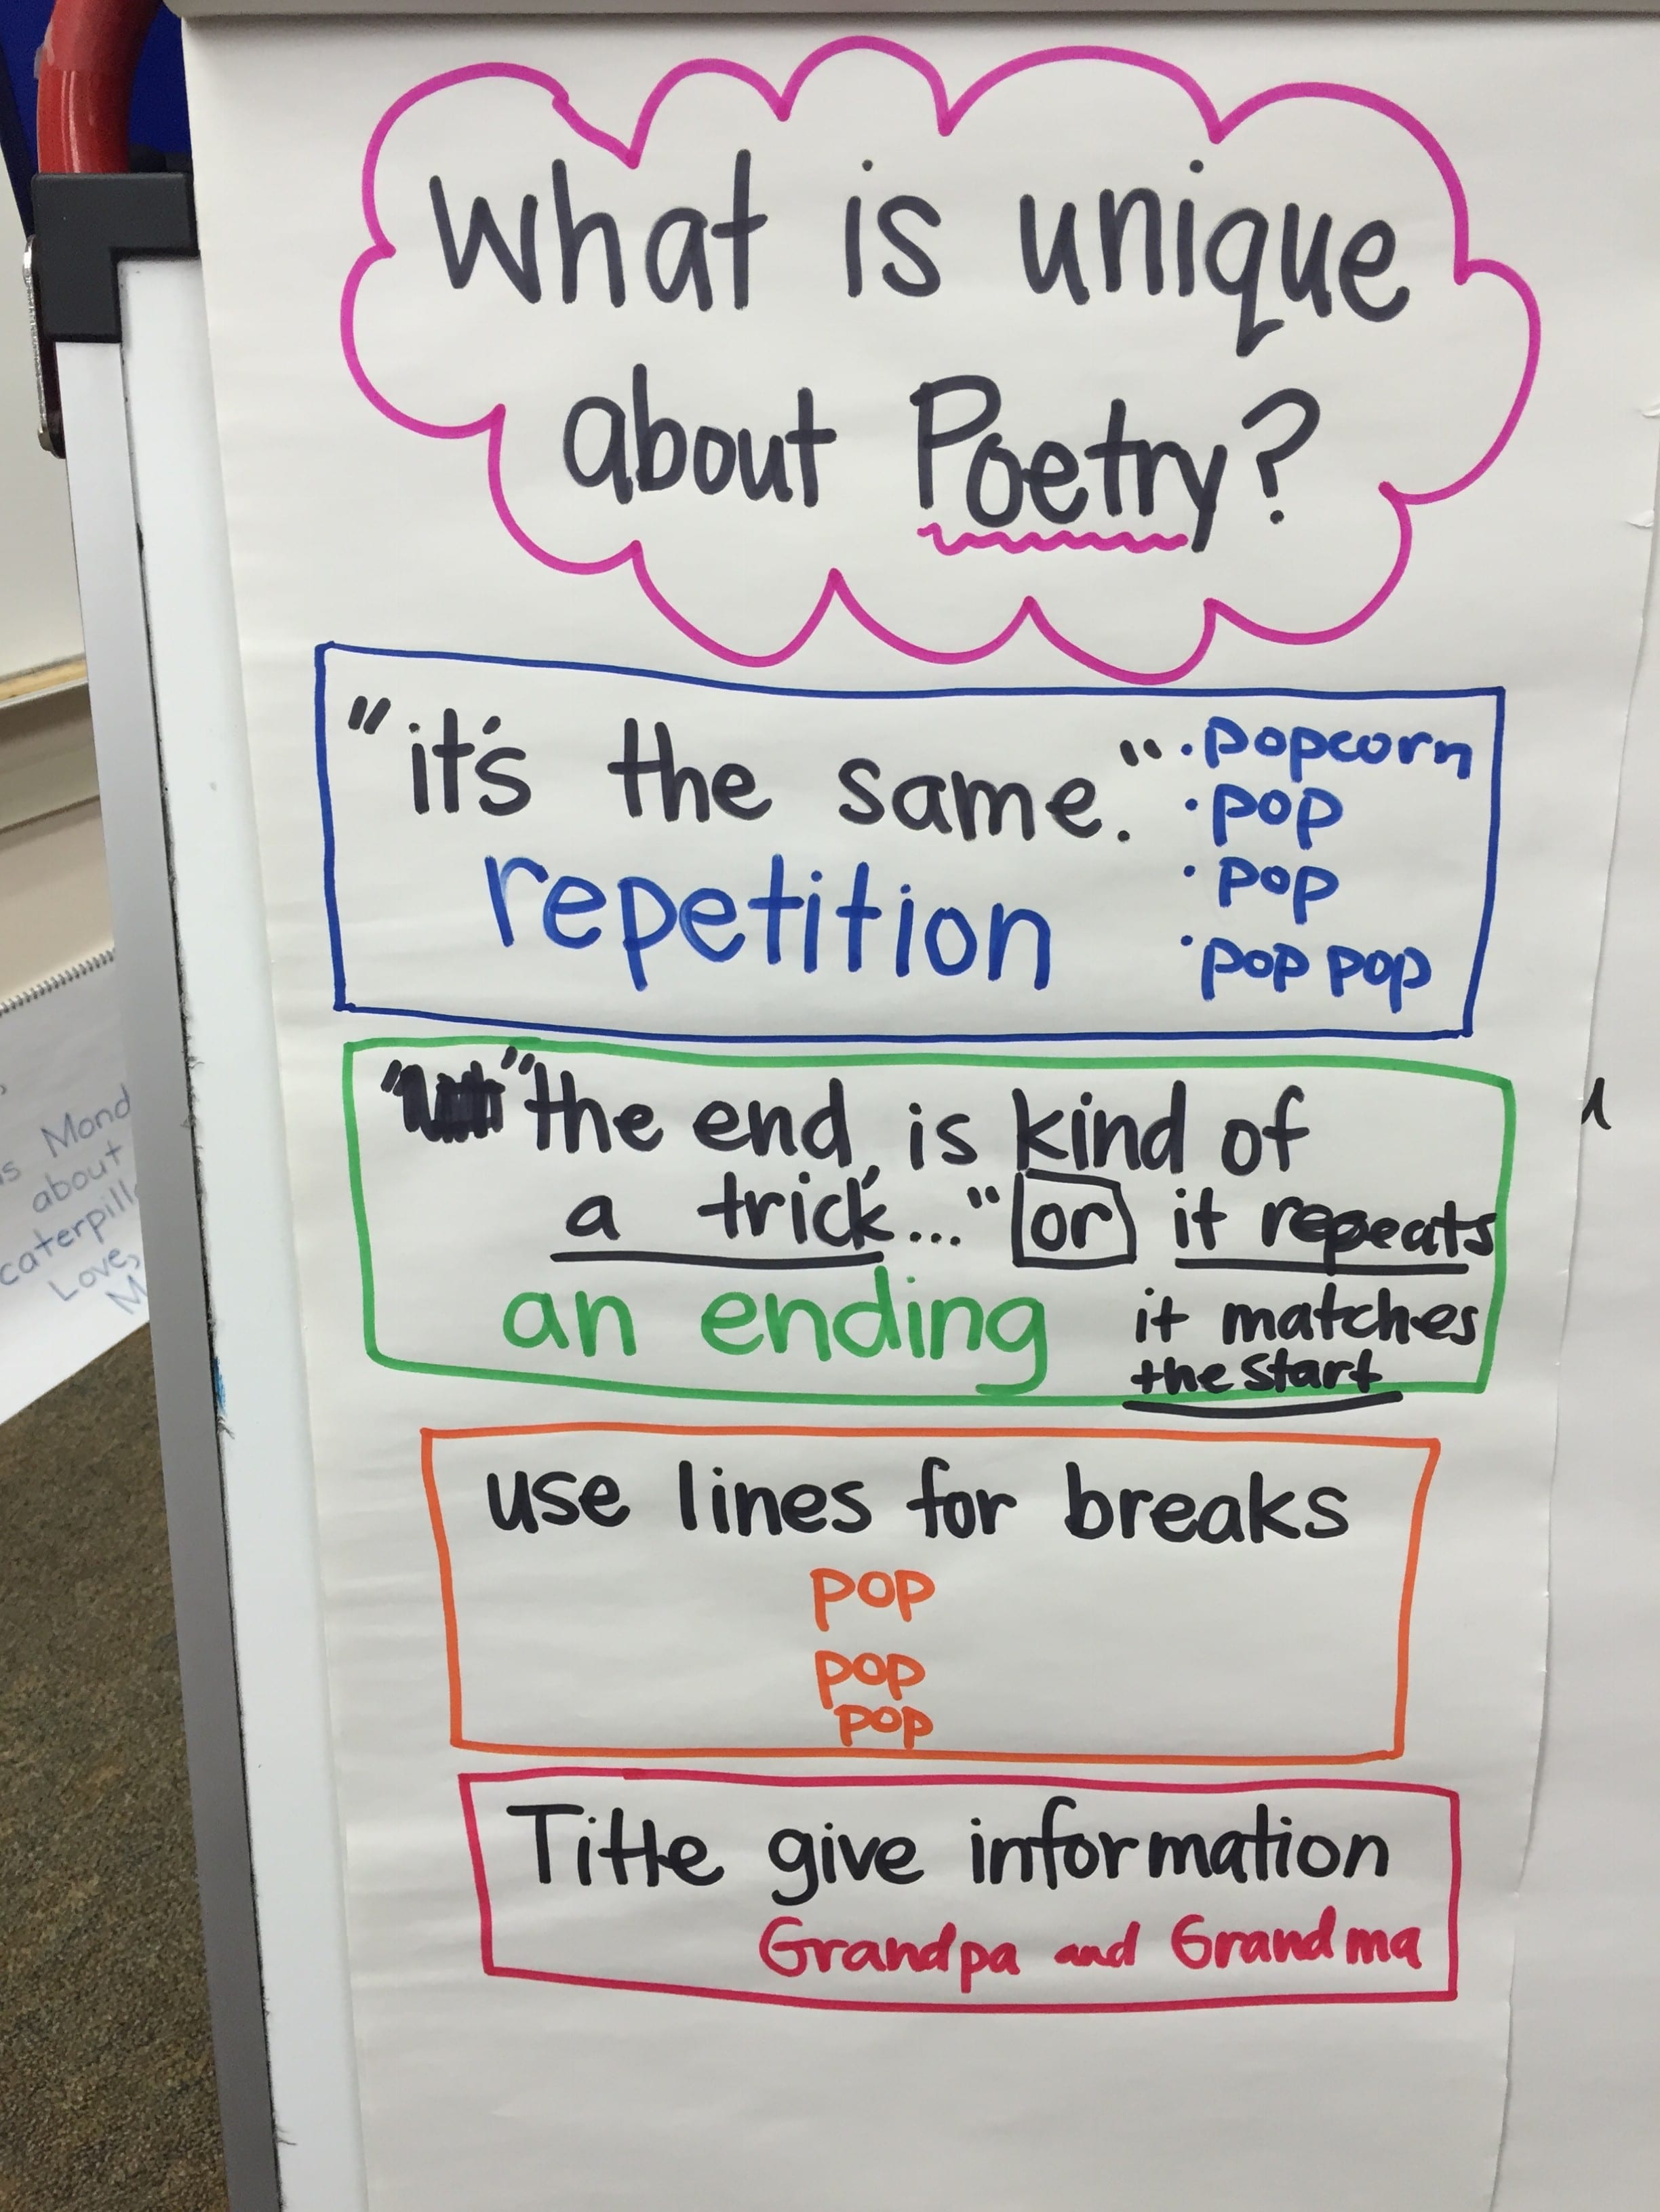 What is unique
about Poetry?
"it's the same."
repetition
· popcorn
· pop
· pop
· pop pop
"the end, is kind of
a trick..." or it repeats
an ending
it matches
the start
use lines for breaks
pop
pop
pop
Title give information
Grandpa and Grandma
Mond
about
caterpill
Love,
M